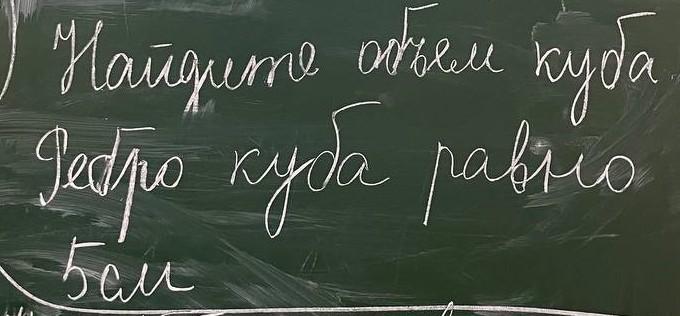 Найдите объем куба
Ребро куба равно
5 см